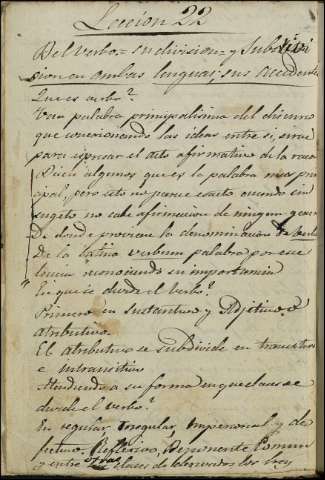 Leccion 22
Del verbo = su division = y Subdivi
sion en ambas lenguas; sus accidentes
Que es verbo?
Una palabra principalisima del discurso
que conexionando las ideas entre si, sirve
para espresar el acto afirmativo de la
Dicen algunos que es la palabra mas prin
cipal, pero esto no parece exacto cuando sin
sugeto no cabe afirmacion de ningun gene
De donde proviene la denominacion de Verbo
De la latina verbum palabra por exe
lencia reconociendo su importancia
En que se divide el verbo?
Primero en sustantivo y Adjetivo, ó
atributivo
El atributivo se subdivide en transitivo
e intransitivo
Atendiendo a su forma en que clases se
divide el verbo?
En regular, Irregular, Impersonal y de
fectivo, Reflexivo, Deponente Comun
y entre otras clases de los hay